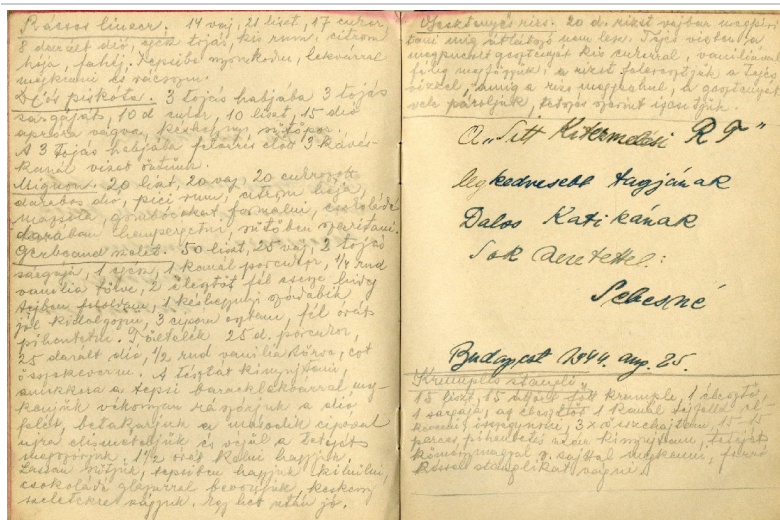 Rácsos lincer. 14 vaj, 21 liszt, 17 cukor
8 darált dió, egész tojás, kis rum, citrom
héja, fahéj. Tepsibe nyomkodni, lekvárral
megkenni és rácsozni.
Diós piskóta. 3 tojás habjába 3 tojás
sárgáját, 10 d cukor, 10 liszt, 15 dió
apróra vágva, késhegynyi sütőpor.
A 3 tojás habjába felverés előtt 3 kávés-
kanál vizet öntünk.
Mignon. 20 liszt, 20 vaj, 20 cukrozott
darabos dió, pici rum, citrom héja,
formálni, csokoládé
darában hempergetni, sütőben szárítani.
Gerbeaud szelet. 50 liszt, 25 vaj, 2 tojás
sárgája, 1 egész, 1 kanál porcukor, 1/4 rud
vanília törve, 2 élesztőt fél csésze hideg
tejben feloldani, 1 késhegynyi szódabik.
jól kidolgozni, 3 cipóra osztani, fél órát
pihentetni. Töltelék 25 d. porcukor,
25 darált dió, 1/2 rud vanília törve, ezt
összekeverni. A tésztát kinyujtani,
amekkora a tepsi baracklekvárral meg-
kenjük vékonyan rászórjuk a dió
felét, betakarjuk a második cipóval
ujra elismételjük és végül a tetejét
1 1/2 órát kelni hagyjuk.
Lassan sütjük, tepsiben hagyjuk kihülni,
csokoládé glazurral bevonjuk, keskeny
szeletekre vágjuk. Egy hét után jó.
Gesztenyés rizs. 20 d. rizst vajban megpári-
tani míg átlátszó nem lesz. Tejes vízben a
gesztenyét kis cukorral, vaniliával
félig megfőzzük, a rizst feleresztjük a tejes
vízzel, amíg a rizs megpuhul, a gesztenyét
vele pároljuk, tetszés szerint
A „Sitt Kitermelési R T"
legkedvesebb tagjának
Dalos Katikának
Sok szeretettel:
Sebesné
Budapest 1944. aug. 25.
Krumplis stangli
15 liszt, 15 vaj, 15 tört krumpli, 1 élesztő,
1 sárgája, az élesztőt 1 kanál tejföllel el-
keverni, összegyúrni, 3 x összehajtani, 15-15
perces pihentetés után kinyujtani, tetejét
köménymaggal v. sajttal
stanglikat vágni.